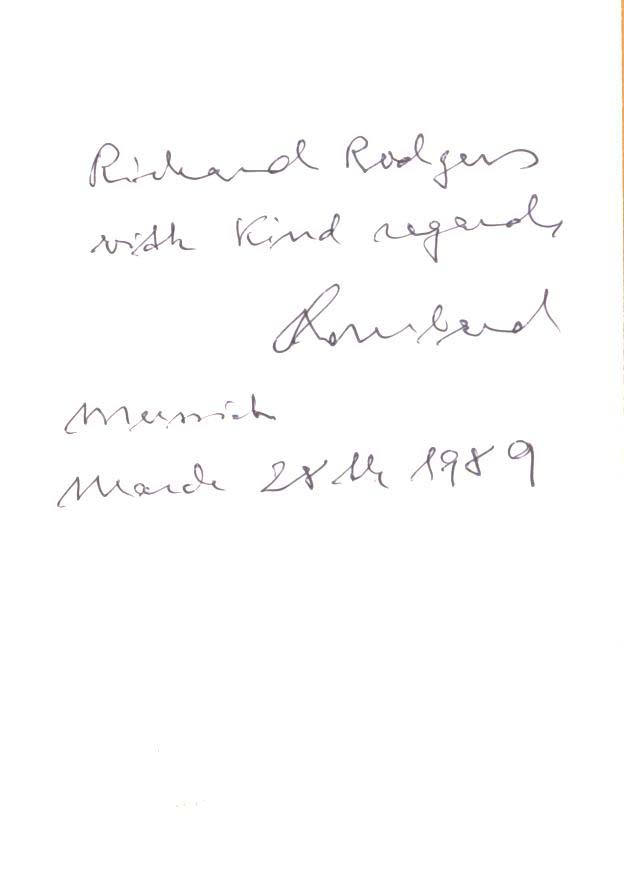 Richard Rodgers
with kind regards
Rombard
Munich
March 28th 1989